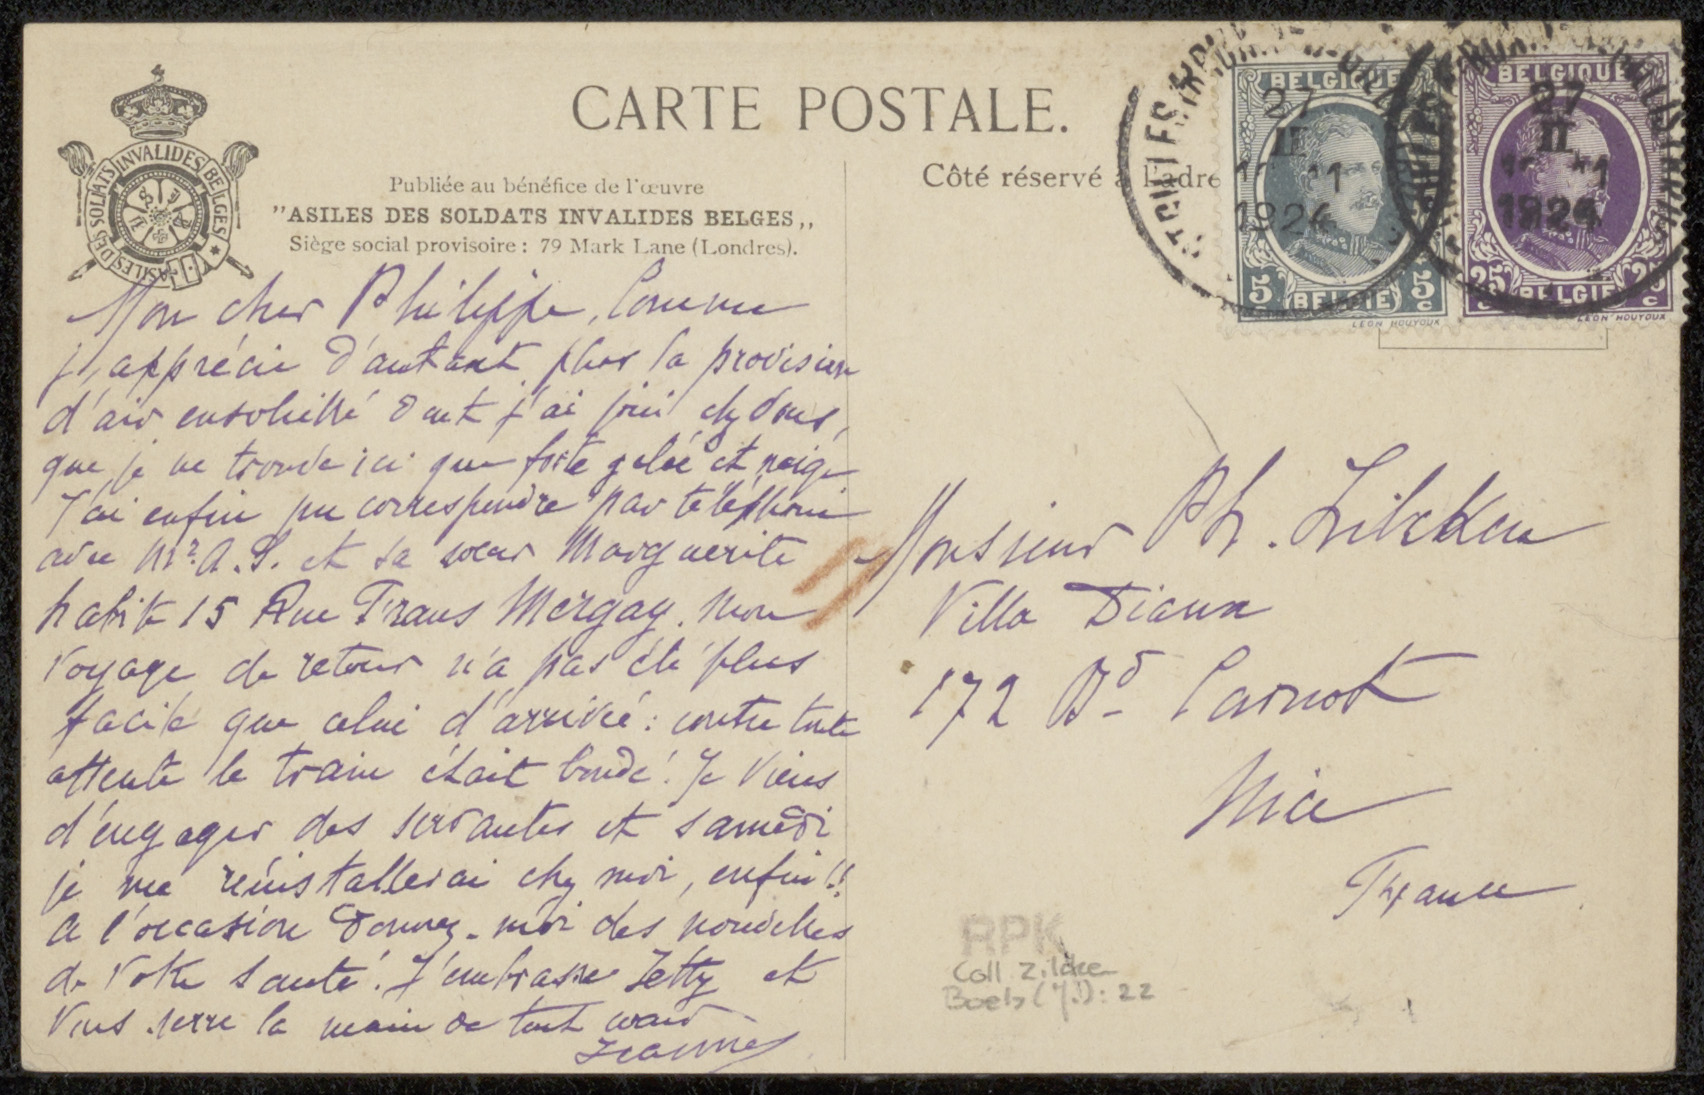 CARTE POSTALE.
Publiée au bénéfice de l'œuvre
"ASILES DES SOLDATS INVALIDES BELGES„
Siège social provisoire : 79 Mark Lane (Londres).
ASILES DES SOLDATS INVALIDES BELGES
Côté réservé à l'adre
BELGIQUE
5c 5c
BELGIË
LEON HOUYOUX
BELGIQUE
25c 25c
BELGIË
LEON HOUYOUX
27
II
1924
27
II
1924
Mon cher Philippe, Comme
j'apprécie d'autant plus la provision
d'air ensoleillé dont j'ai joui chez vous,
que je ne trouve ici que forte gelée et neige
J'ai enfin pu correspondre par téléphone
avec Mr. A. S. et sa sœur Marguerite
habite 15 Rue Frans Mergay. Mon
voyage de retour n'a pas été plus
facile que celui d'arrivée : contre toute
attente le train était bondé ! Je viens
d'engager des servantes et samedi
je me réinstallerai chez moi, enfin !!
A l'occasion donnez-moi des nouvelles
de votre santé. J'embrasse Hetty et
vous serre la main de tout cœur
Jeanne
Monsieur Ph. Zilcken
Villa Diana
172 Bd Carnot
Nice
France
RPK
Coll. Zilcken
Boels (J.): 22